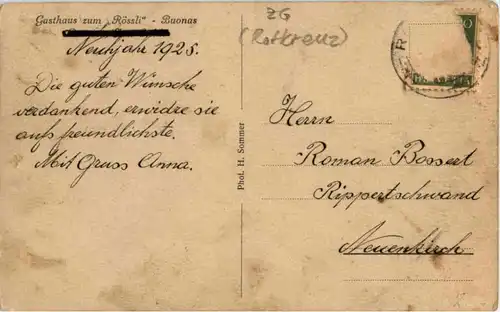 Gasthaus zum "Rössli" - Buonas
Neuhjahr 1925.
Die guten Wünsche
verdankend, erwidre sie
aufs freundlichste.
Mit Gruss Anna.
Phot. H. Sommer
ZG
(Rotkreuz)
Herrn
Roman Bossert
Rippertschwand
Neuenkirch